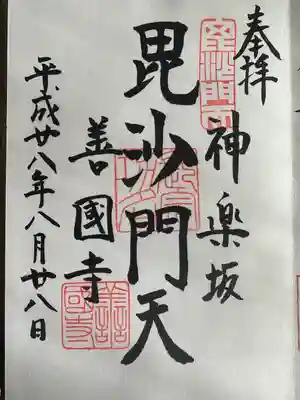 奉拝
神楽坂
毘沙門天
善國寺
平成廿八年八月廿八日